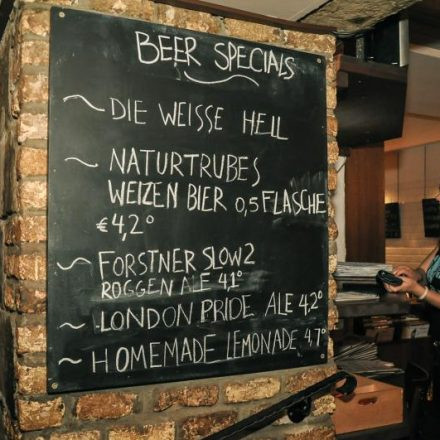 BEER SPECIALS
~ DIE WEISSE HELL
~ NATURTRUBES
WEIZEN BIER 0,5 FLASCHE
€ 4,2°
~ FORSTNER SLOW 2
ROGGEN ALE 4,1°
~ LONDON PRIDE ALE 4,2°
~ HOMEMADE LEMONADE 4,7°